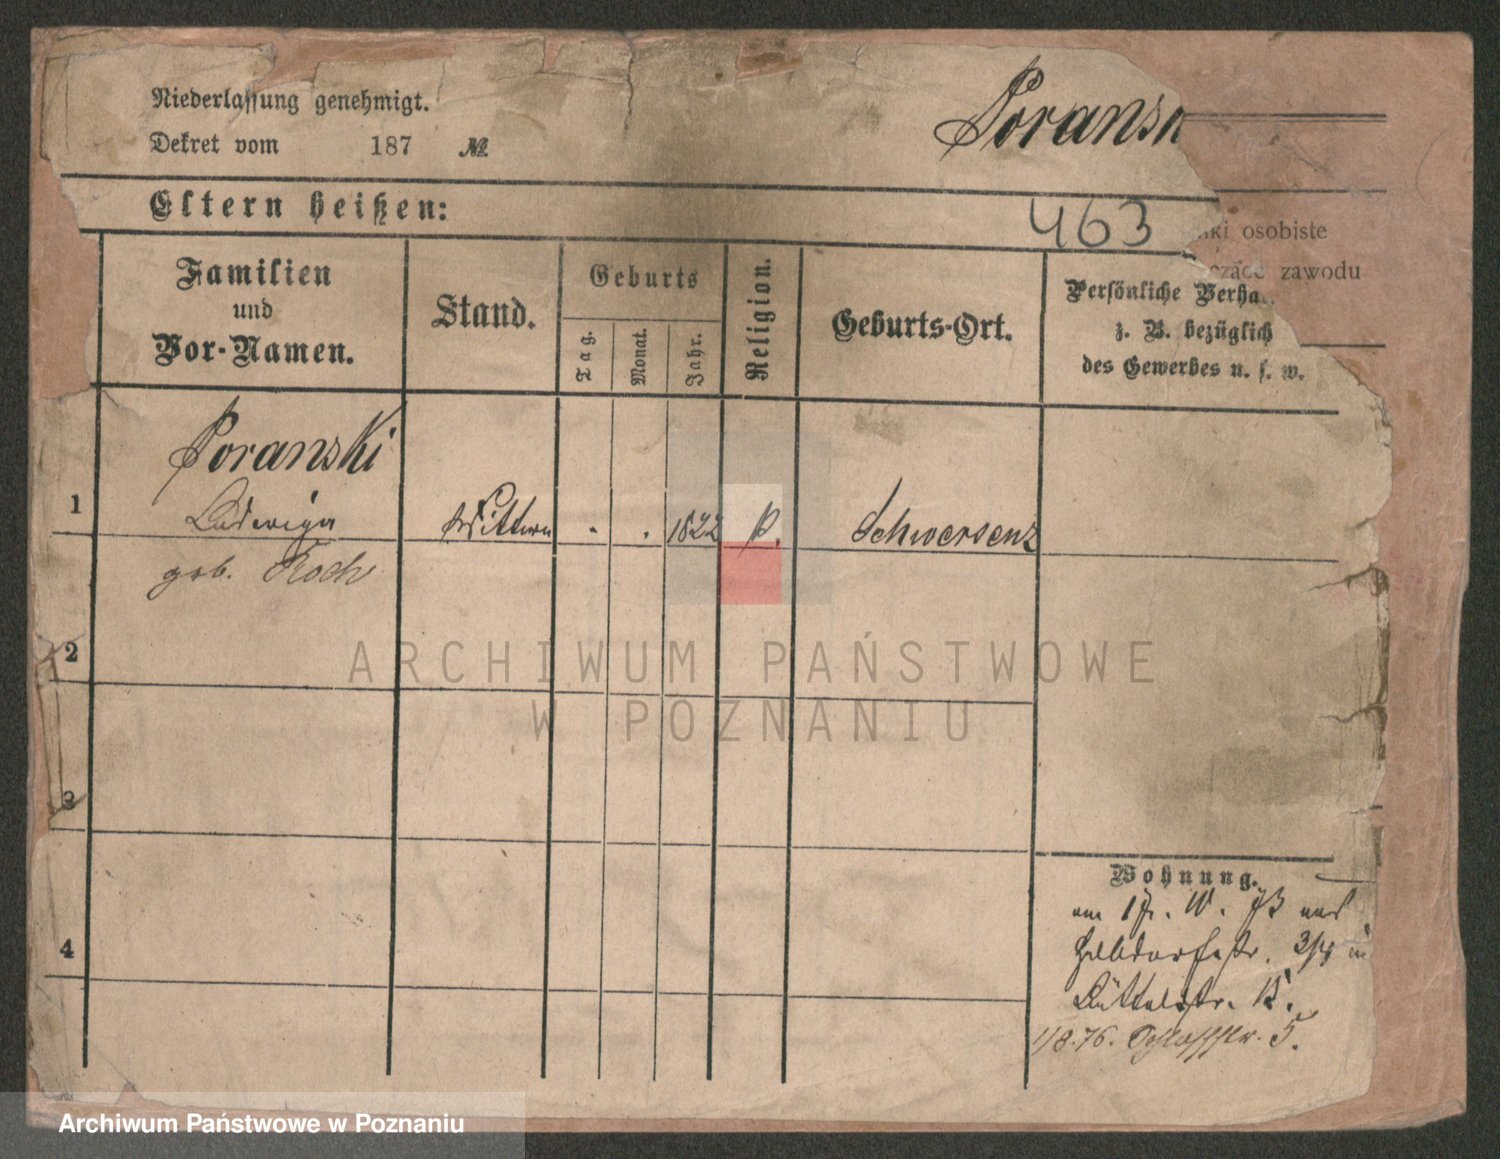 Niederlassung genehmigt.
Dekret vom 187 №
Poransk
Eltern heißen:
463
osobiste
zawodu
Familien
und
Vor-Namen.
Stand.
Geburts
Tag.
Monat.
Jahr.
Religion.
Geburts-Ort.
Persönliche Verha
z. B. bezüglich
des Gewerbes u. s. w.
1
Poranski
Ludwiga
Wittwe . . 1822 k. Schwersenz
geb. Koch
2
3
4
Wohnung.
Halbdorfstr. 3/4
Büttelstr.
1/8.76. Schlossstr. 5.
ARCHIWUM PAŃSTWOWE
W POZNANIU
Archiwum Państwowe w Poznaniu